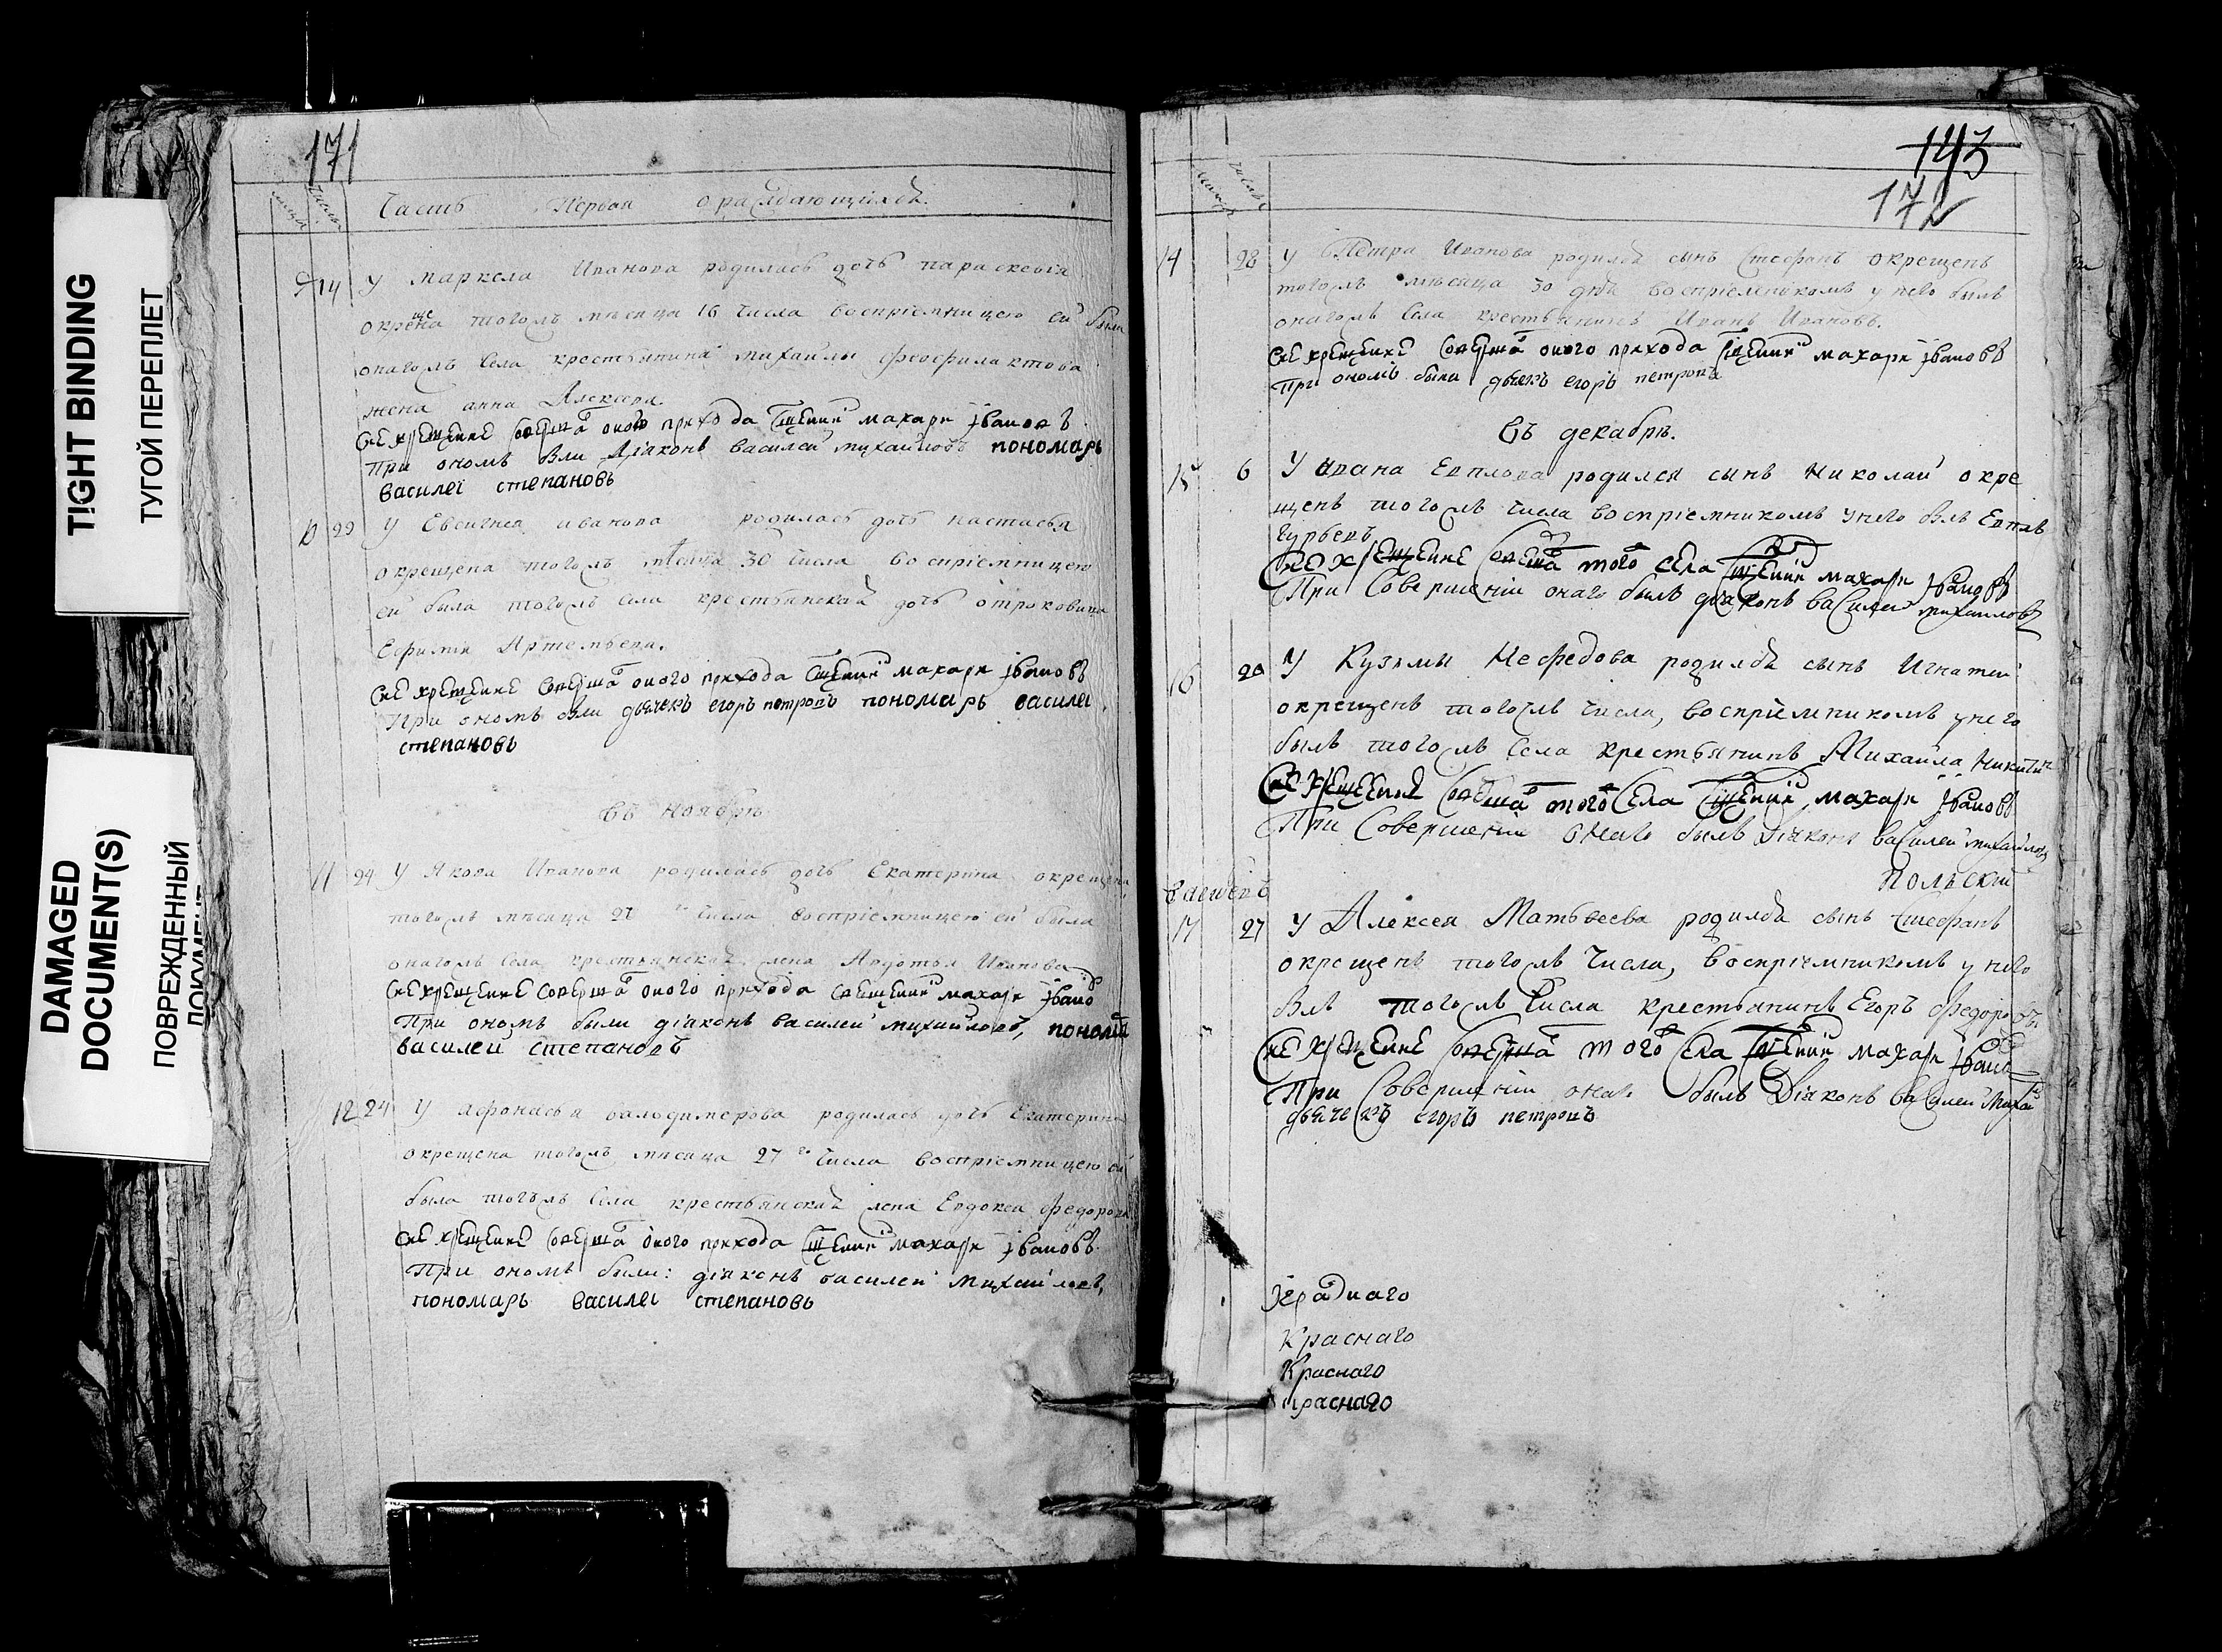 TIGHT BINDING
ТУГОЙ ПЕРЕПЛЕТ
DAMAGED
DOCUMENT(S)
ПОВРЕЖДЕННЫЙ
ДОКУМЕНТ
171
числа
Часть Первая о раждающихся.
9 14 У маркела Иванова родилась дочь параскевіа
окрещена тогожъ мѣсяца 16 числа воспріемницею ей была
онагожъ села крестьянина михайлы феофилактова
жена анна Алексѣева.
сие крещение соверша оного прихода сщенникъ макари јвановъ
При ономъ были діаконъ василей михайловъ пономарь
василеі степановъ
10 29 У Евсигнея иванова родилась дочь настасья
окрещена тогожъ мѣсяца 30 числа воспріемницею
ей была тогожъ села крестьянская дочь отроковица
Ефимія Артемьева.
сие крещение соверша оного прихода сщенникъ макари јвановъ
При ономъ были дьячекъ егоръ петровъ пономарь василеі
степановъ
Въ ноябрѣ.
11 24 У Якова Иванова родилась дочь Екатерина окрещена
тогожъ мѣсяца числа воспріемницею ей была
онагожъ села крестьянская жена Авдотья Иванова
сие крещение соверша оного прихода священникъ макари јвановъ
При ономъ были діаконъ василей михайловъ, пономарь
василей степановъ
12 24 У афонасья валодимерова родилась дочь Екатерина
окрещена тогожъ мѣсяца 27го числа воспріемницею ей
была тогожъ села крестьянская жена Евдокея федорова
сие крещение соверша оного прихода сщенникъ макари јвановъ.
При ономъ были: діаконъ василей михайловъ,
пономарь василеі степановъ
143
172
числа
14 28 У Петра Иванова родился сынъ Стефанъ окрещенъ
тогожъ мѣсяца 30 дня воспріемникомъ у него былъ
онагожъ села крестьянинъ Иванъ Ивановъ.
сие крещение соверша оного прихода сщенникъ макари јвановъ
При ономъ были дьячекъ егоръ петровъ
Въ декабрѣ.
15 6 У ивана Евплова родился сынъ николай окре
щенъ тогожъ числа воспріемникомъ у него былъ Евплъ
Гурьевъ
сие крещение соверша того села сщенникъ макари јвановъ
При Совершеніи онаго былъ діаконъ василей михаиловъ
16 20 У Кузьмы Нефедова родился сынъ Игнатей
окрещенъ тогожъ числа, воспріемникомъ у него
былъ тогожъ села крестьянинъ Михайла никитинъ
сие крещение соверша того села сщенникъ макари јвановъ
При Совершеніи онаго былъ Діаконъ василей михайловъ
Польский
17 27 У Алексея Матвеева родился сынъ стефанъ
окрещенъ тогожъ числа, воспріемникомъ у него
былъ тогожъ села крестьянинъ Егоръ федоровъ
сие крещение соверша того села сщенникъ макари јвановъ
При Совершеніи онаго былъ Діаконъ василей михай
дьячекъ егоръ петровъ
Краснаго
Краснаго
краснаго